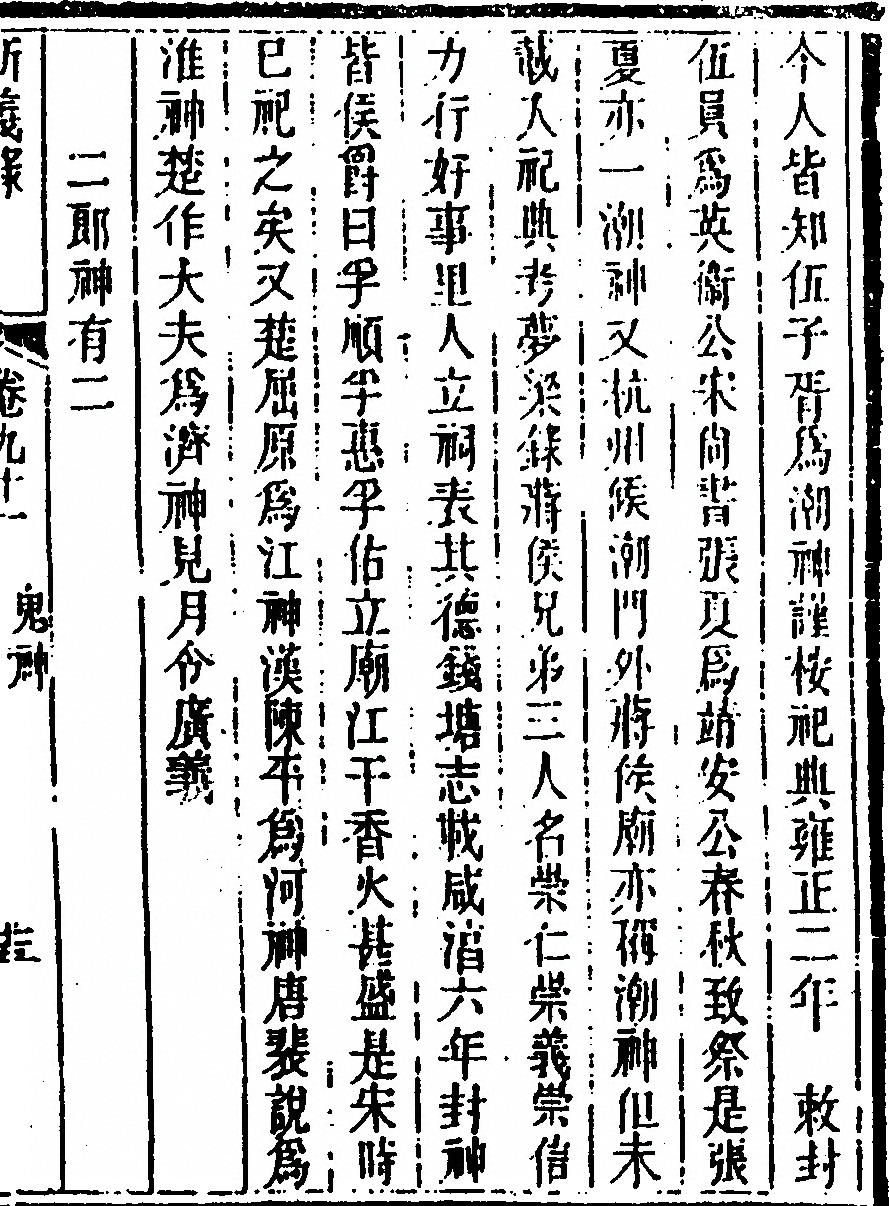 今人皆知伍子胥爲潮神謹按祀典雍正二年 敕封
伍員爲英衛公宋尙書張夏爲靖安公春秋致祭是張
夏亦一潮神又杭州候潮門外蔣侯廟亦稱潮神但未
載入祀典考夢梁錄蔣侯兄弟三人名崇仁崇義崇信
力行好事里人立祠表其德錢塘志載咸淳六年封神
皆侯爵曰孚順孚惠孚佑立廟江干香火甚盛是宋時
已祀之矣又楚屈原爲江神漢陳平爲河神唐裴說爲
淮神楚作大夫爲濟神見月令廣義
二郞神有二
卷九十一
鬼神